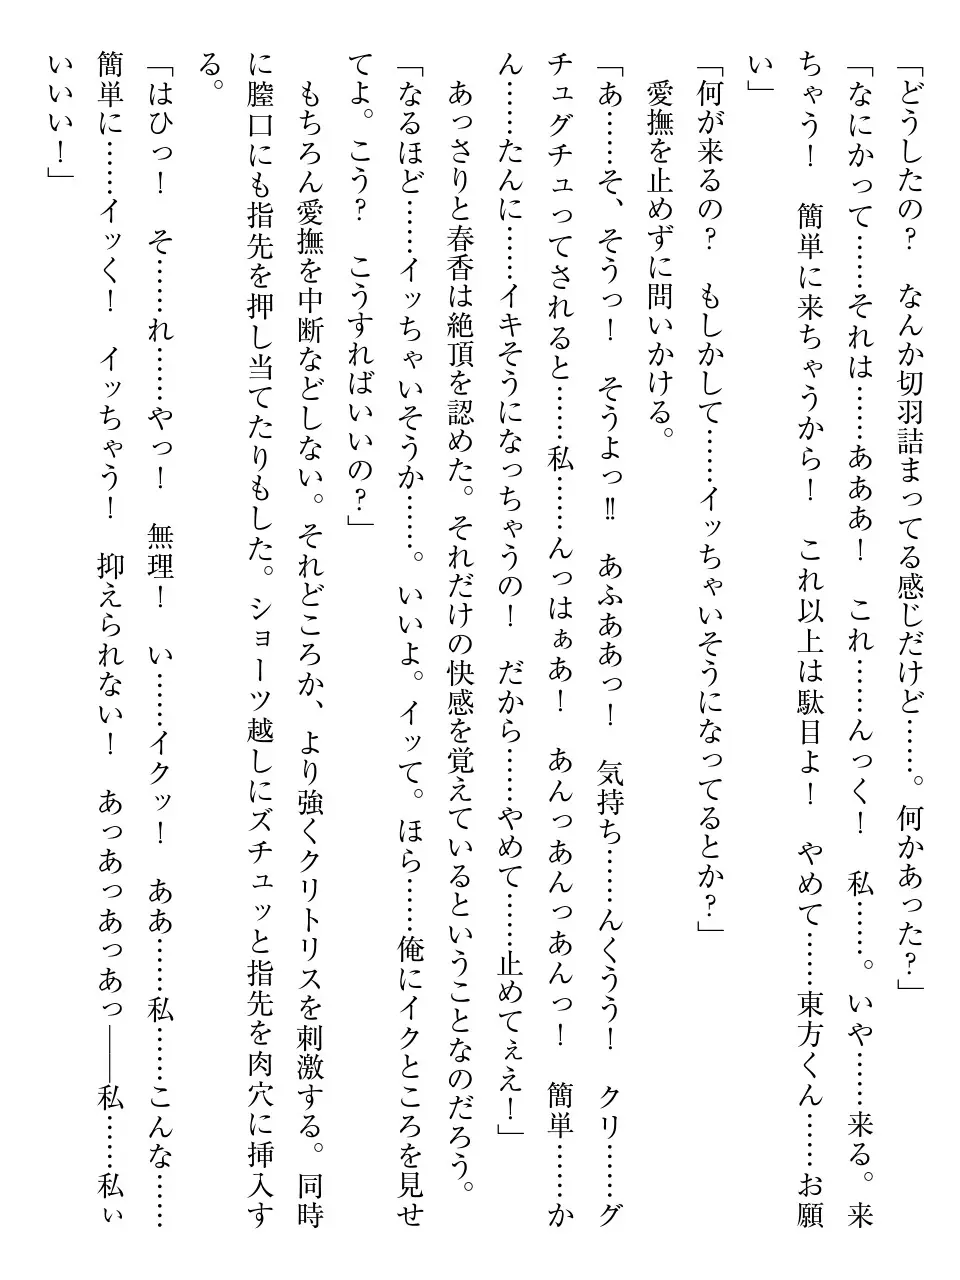 「どうしたの？　なんか切羽詰まってる感じだけど……。何かあった？」
「なにかって……それは……あああ！　これ……んっく！　私……。いや……来る。来
ちゃう！　簡単に来ちゃうから！　これ以上は駄目よ！　やめて……東方くん……お願
い」
「何が来るの？　もしかして……イッちゃいそうになってるとか？」
　愛撫を止めずに問いかける。
「あ……そ、そうっ！　そうよっ‼　あふああっ！　気持ち……んくうう！　クリ……グ
チュグチュってされると……私……んっはぁあ！　あんっあんっあんっ！　簡単……か
ん……たんに……イキそうになっちゃうの！　だから……やめて……止めてぇえ！」
　あっさりと春香は絶頂を認めた。それだけの快感を覚えているということなのだろう。
「なるほど……イッちゃいそうか……。いいよ。イッて。ほら……俺にイクところを見せ
てよ。こう？　こうすればいいの？」
　もちろん愛撫を中断などしない。それどころか、より強くクリトリスを刺激する。同時
に膣口にも指先を押し当てたりもした。ショーツ越しにズチュッと指先を肉穴に挿入す
る。
「はひっ！　そ……れ……やっ！　無理！　い……イクッ！　ああ……私……こんな……
簡単に……イッく！　イッちゃう！　抑えられない！　あっあっあっあっ――私……私ぃ
いいい！」